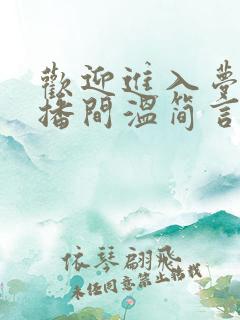 歡迎進入夢
播間溫簡言
依琴翩飛
未经同意禁止转载